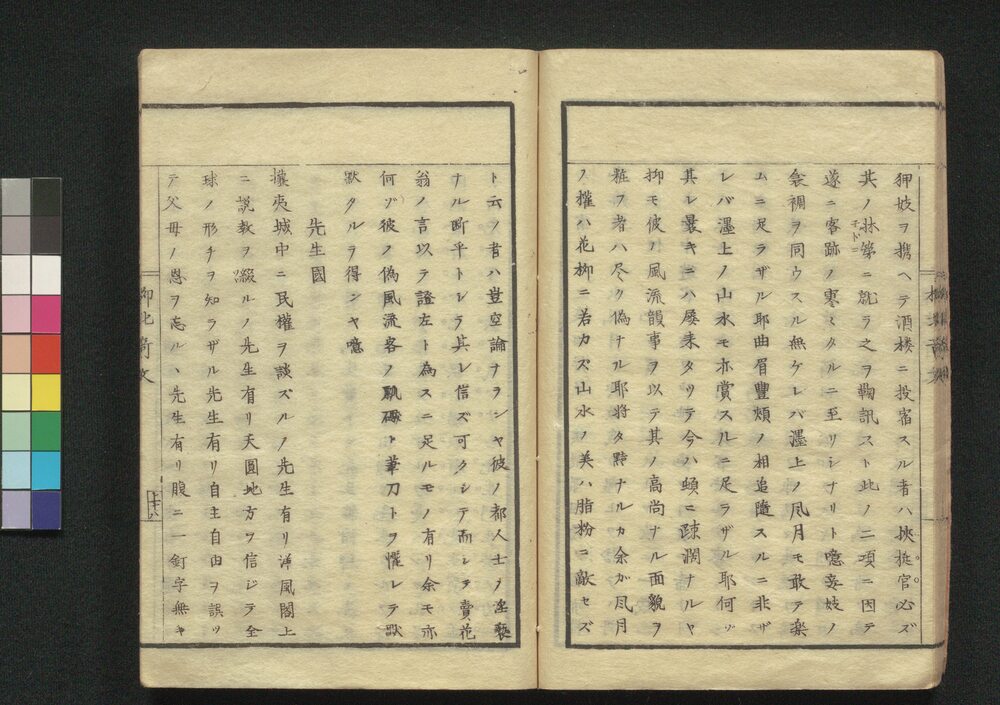 狎妓ヲ携ヘテ酒楼ニ投宿スル者ハ挾挺官必ズ
其ノ牀第ニ就テ之ヲ鞠訊スト此ノ二項ニ因テ
遂ニ客跡ノ寒ミタルニ至リシナリト噫妾妓ノ
衾裯ヲ同ウスル無ケレバ濹上ノ風月モ敢テ楽
ムニ足ラザル耶曲眉豊頬ノ相追隨スルニ非ザ
レバ濹上ノ山水モ亦賞スルニ足ラザル耶何ヅ
其レ曩キニハ屡来タリテ今ハ頓ニ疎濶ナルヤ
抑モ彼ノ風流韻事ヲ以テ其ノ高尚ナル面貌ヲ
粧フ者ハ尽ク偽ナル耶将タ黠ナルカ余ガ風月
ノ権ハ花柳ニ若カズ山水ノ美ハ脂粉ニ敵セズ
ト云ノ者ハ豈空論ナランヤ彼ノ都人士ノ淫褻
ナル断乎トシテ其レ信ズ可クシテ而シテ賣花
翁ノ言以テ證左ト為スニ足ルモノ有リ余モ亦
何ゾ彼ノ偽風流客ノ
ト筆刀トヲ懼レテ
黙タルヲ得ンヤ噫
先生國
攘夷城中ニ民權ヲ談ズルノ先生有リ洋風閣上
ニ説教ヲ綴ルノ先生有リ天圓地方ヲ信ジテ全
球ノ形チヲ知ラザル先生有リ自主自由ヲ誤ツ
テ父母ノ恩ヲ忘ルヽ先生有リ腹ニ一釘字無キ
上十八